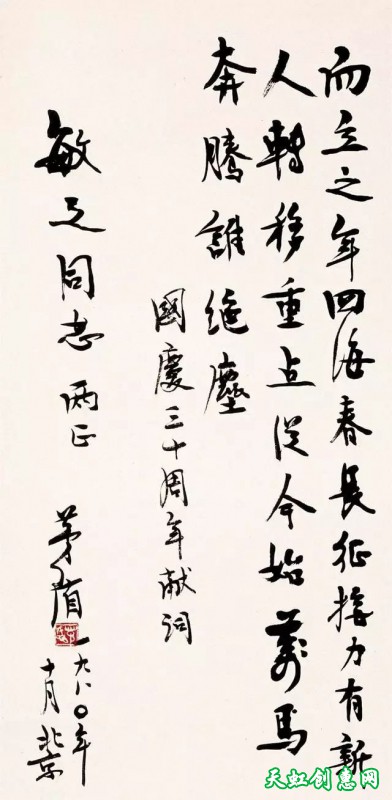 而立之年四海春长征接力有新
人轉移重点從今始萬馬
奔騰誰绝塵
國慶三十周年献词
敏之同志两正
茅盾
一九八〇年
十月北京
天虹创意网